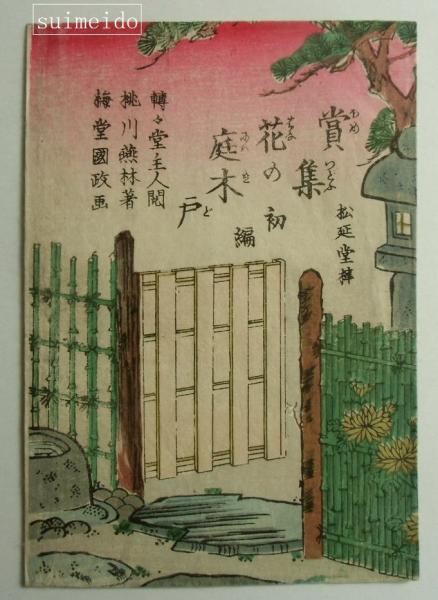 suimeido
松延堂梓
賞集
花の初編
庭木戸
轉々堂主人閲
桃川燕林著
梅堂國政画